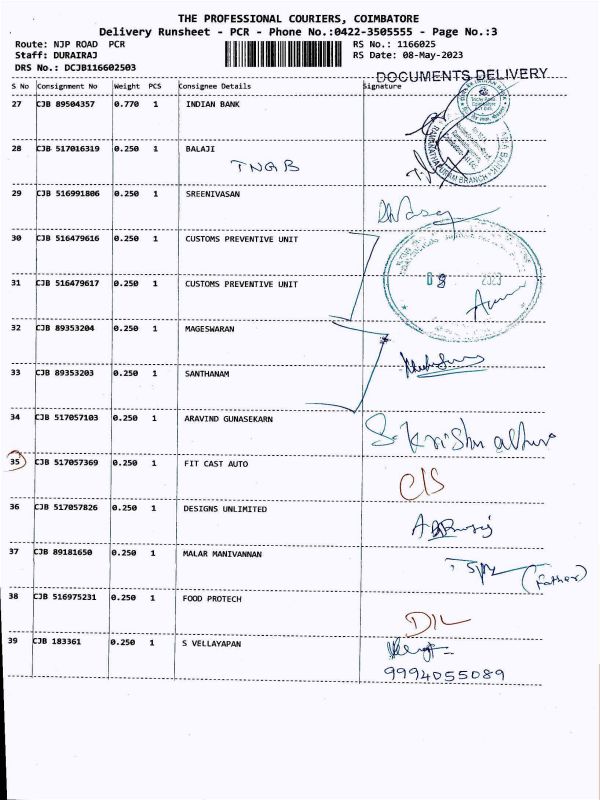 THE PROFESSIONAL COURIERS, COIMBATORE
Delivery Runsheet - PCR - Phone No.:0422-3505555 - Page No.:3
Route: NJP ROAD PCR RS No.: 1166025
Staff: DURAIRAJ RS Date: 08-May-2023
DRS No.: DCJB116602503
DOCUMENTS DELIVERY
S No Consignment No Weight PCS Consignee Details Signature
27 CJB 89504357 0.770 1 INDIAN BANK
28 CJB 517016319 0.250 1 BALAJI
TNGB
29 CJB 516991806 0.250 1 SREENIVASAN
30 CJB 516479616 0.250 1 CUSTOMS PREVENTIVE UNIT
31 CJB 516479617 0.250 1 CUSTOMS PREVENTIVE UNIT
08 2023
32 CJB 89353204 0.250 1 MAGESWARAN
33 CJB 89353203 0.250 1 SANTHANAM
34 CJB 517057103 0.250 1 ARAVIND GUNASEKARN
35 CJB 517057369 0.250 1 FIT CAST AUTO
C/S
36 CJB 517057826 0.250 1 DESIGNS UNLIMITED
37 CJB 89181650 0.250 1 MALAR MANIVANNAN
(Father)
38 CJB 516975231 0.250 1 FOOD PROTECH
D/L
39 CJB 183361 0.250 1 S VELLAYAPAN
9994055089